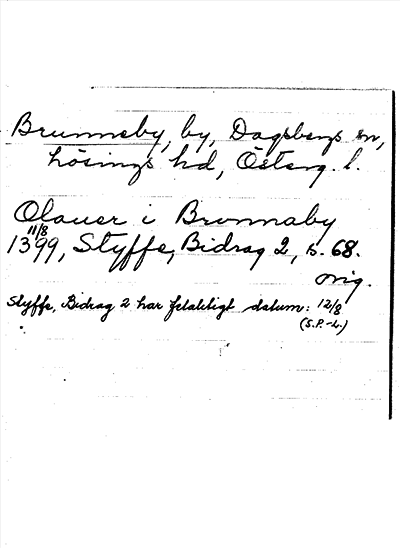 Brunneby, by, Dagsbergs sn,
Lösings hd, Österg. l.
Olauer i Brunnaby
11/8
1399, Styffe, Bidrag 2, s. 68.
orig.
Styffe, Bidrag 2 har felaktigt datum: 12/8
(S.P.-L.)